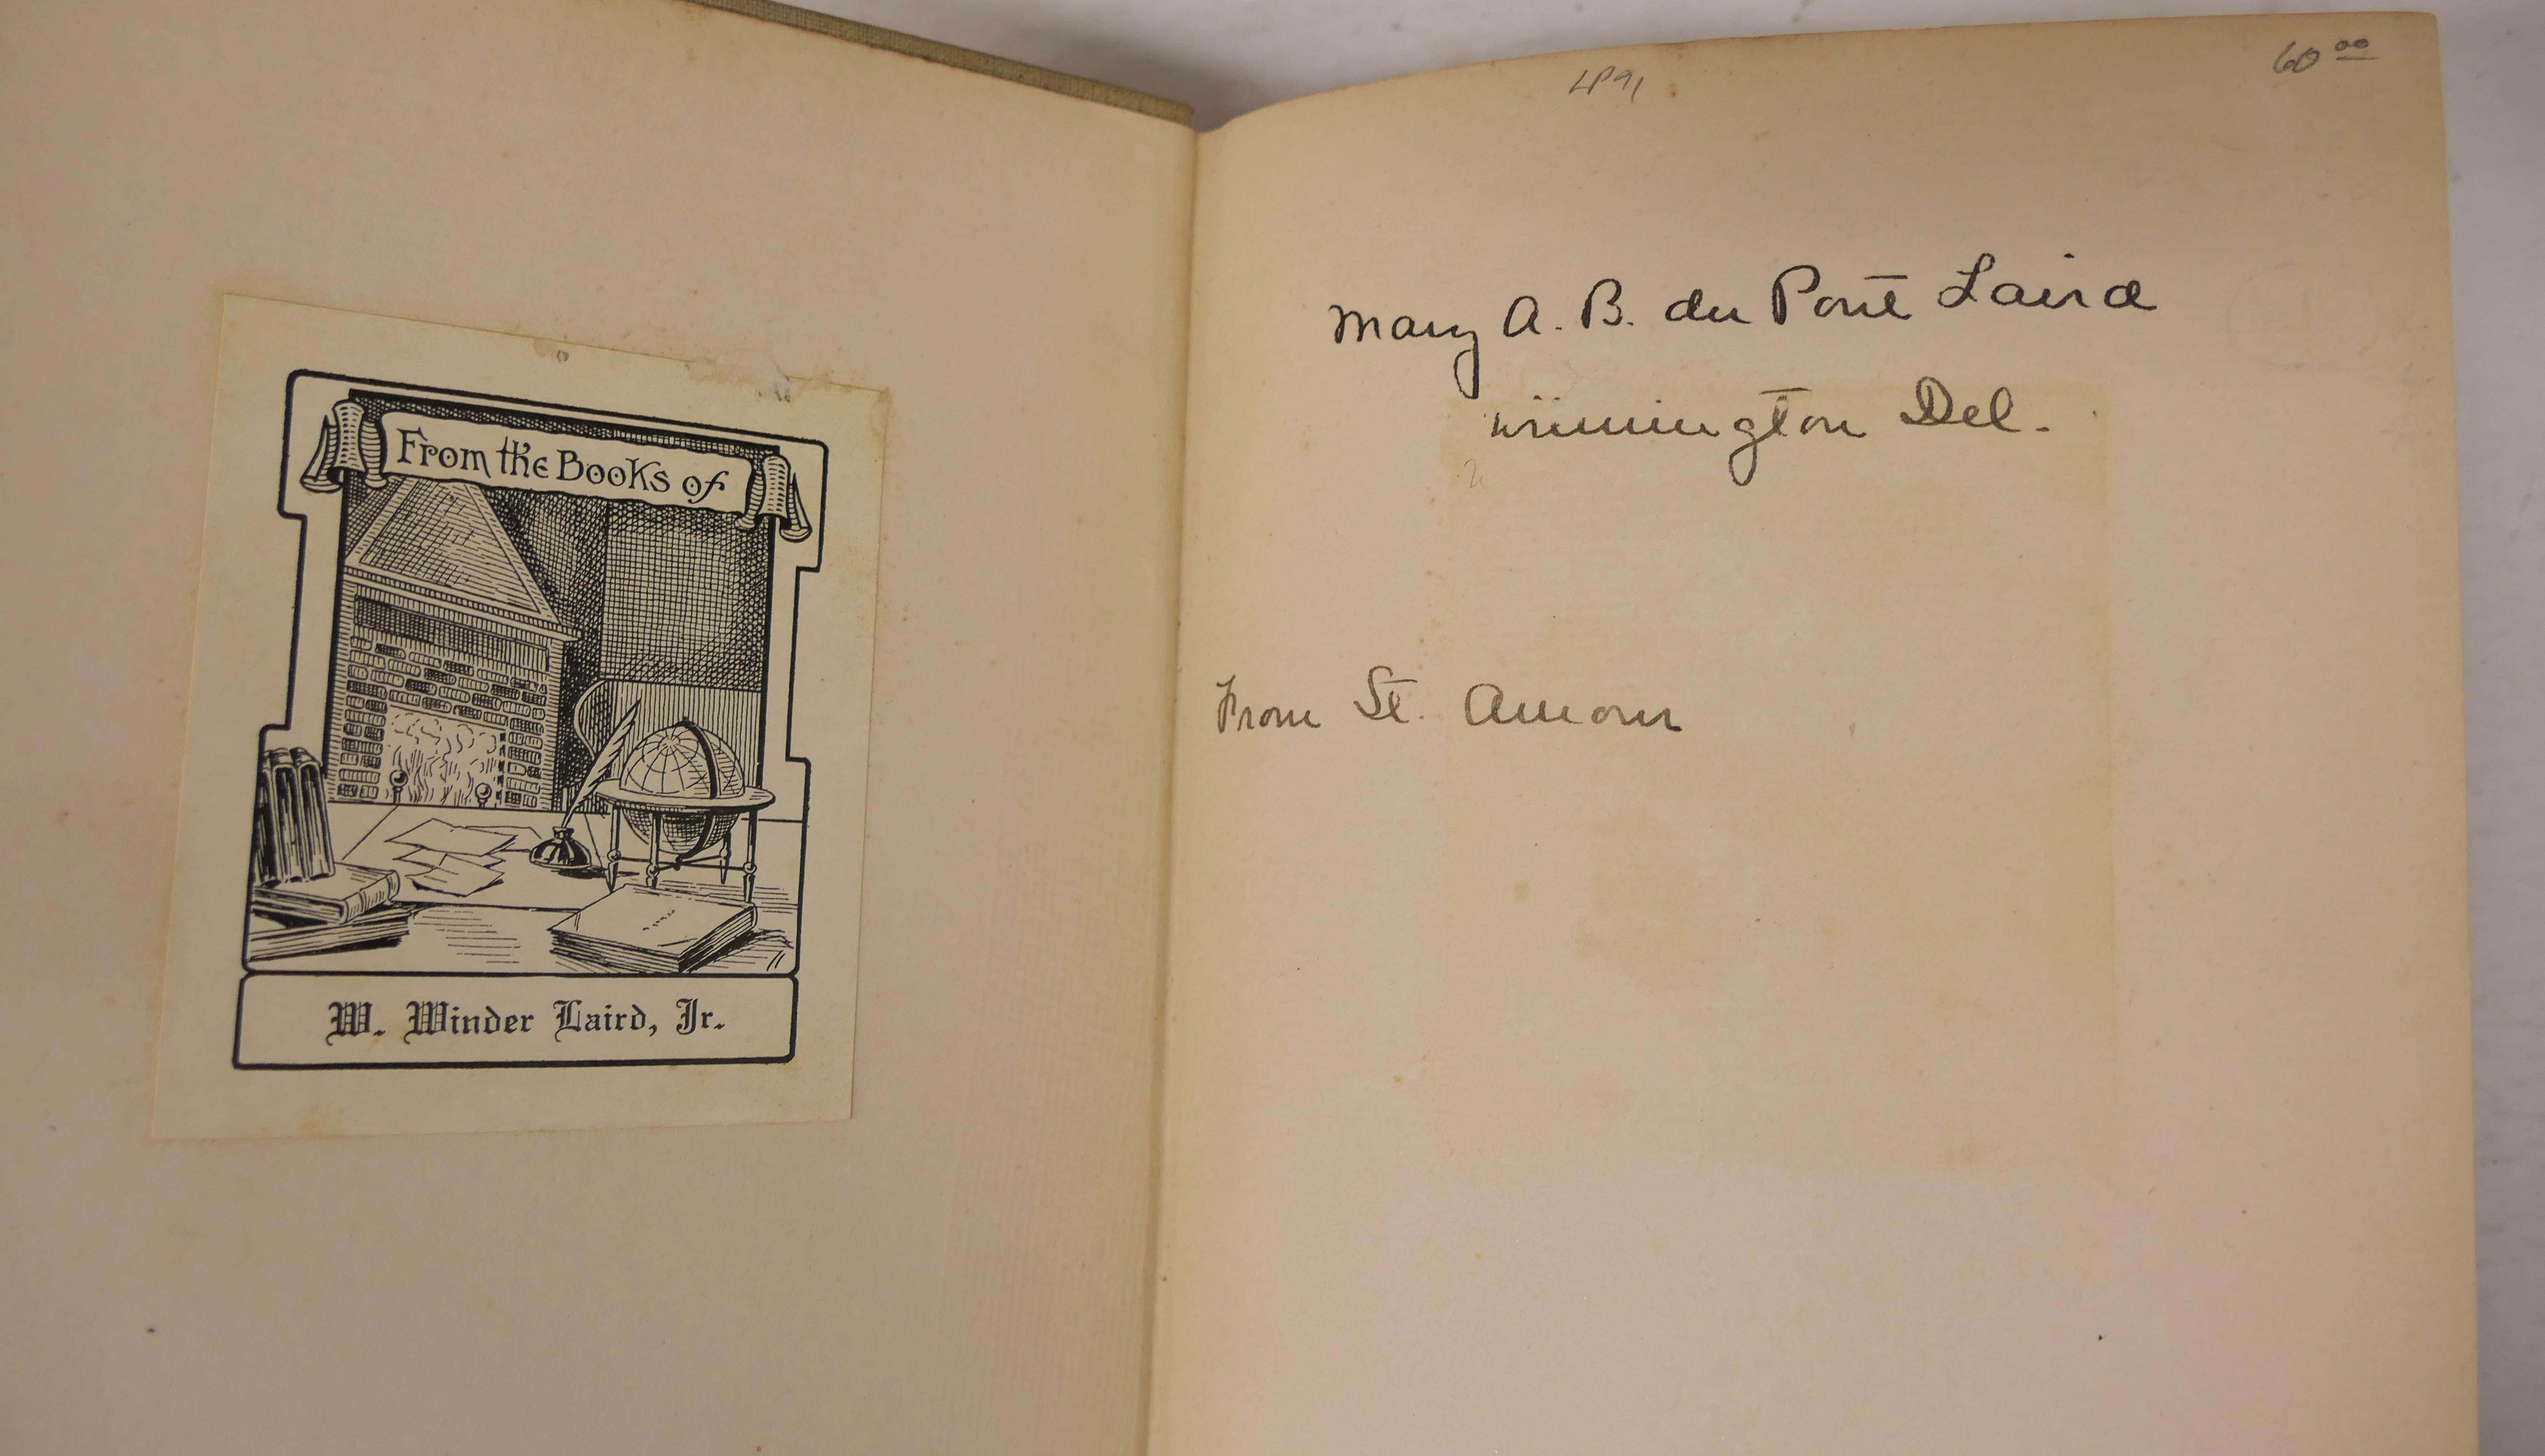 From the Books of
W. Winder Laird, Jr.
60 00
Mary A. B. du Pont Laird
Wilmington Del.
From St. Amour